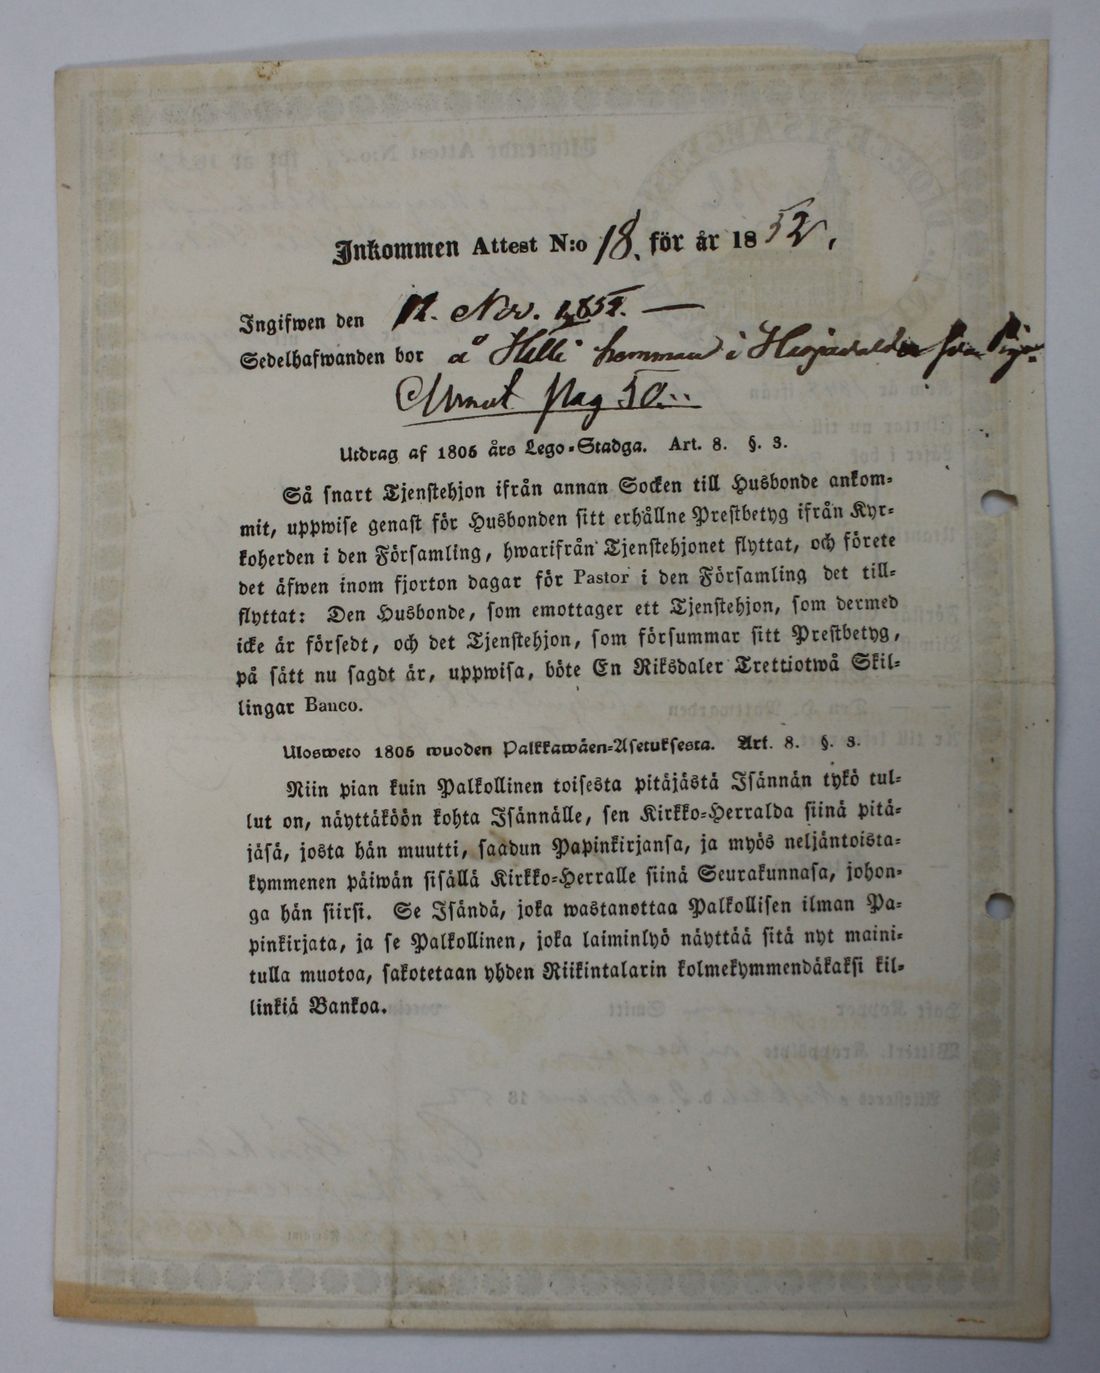 Inkommen Attest N:o 18. för år 1852.
Ingifwen den 12. Nov. 1852. —
Sedelhafwanden bor å Hilli hemman i
pag 50.
Utdrag af 1805 års Lego-Stadga. Art. 8. §. 3.
Så snart Tjenstehjon ifrån annan Socken till Husbonde ankom-
mit, uppwise genast för Husbonden sitt erhållne Prestbetyg ifrån Kyr-
koherden i den Församling, hwarifrån Tjenstehjonet flyttat, och förete
det äfwen inom fjorton dagar för Pastor i den Församling det till-
flyttat: Den Husbonde, som emottager ett Tjenstehjon, som dermed
icke är försedt, och det Tjenstehjon, som försummar sitt Prestbetyg,
på sätt nu sagdt är, uppwisa, böte En Riksdaler Trettiotwå Skil-
lingar Banco.
Ulosweto 1805 wuoden Palkkawäen-Asetuksesta. Art. 8. §. 3.
Niin pian kuin Palkollinen toisesta pitäjästä Isännän tykö tul-
lut on, näyttäköön kohta Isännälle, sen Kirkko-Herralda siinä pitä-
jäsä, josta hän muutti, saadun Papinkirjansa, ja myös neljäntoista-
kymmenen päiwän sisällä Kirkko-Herralle siinä Seurakunnasa, johon-
ga hän siirsi. Se Isändä, joka wastanottaa Palkollisen ilman Pa-
pinkirjata, ja se Palkollinen, joka laiminlyö näyttää sitä nyt maini-
tulla muotoa, sakotetaan yhden Riikintalarin kolmekymmendäkaksi kil-
linkiä Bankoa.